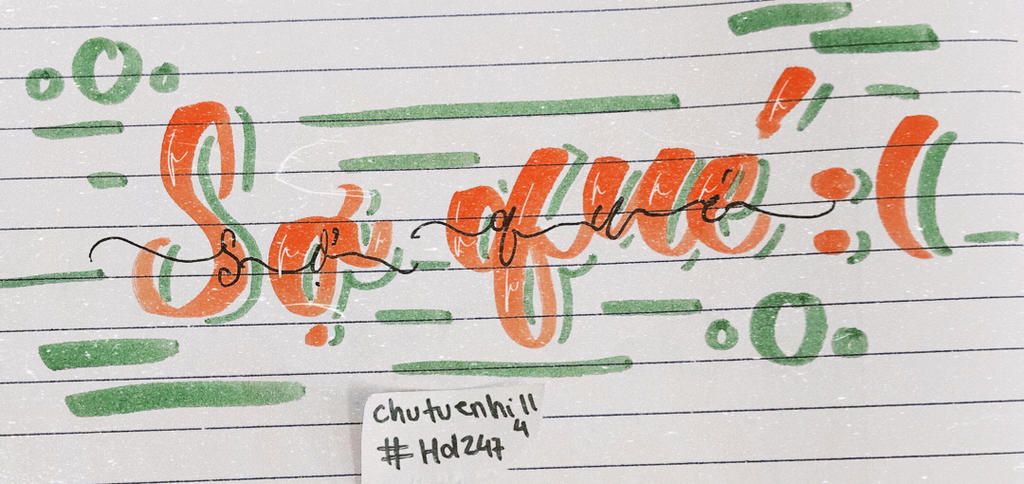 Sợ qué :(
Sợ qué
chutuenhi11
4
#Hd247